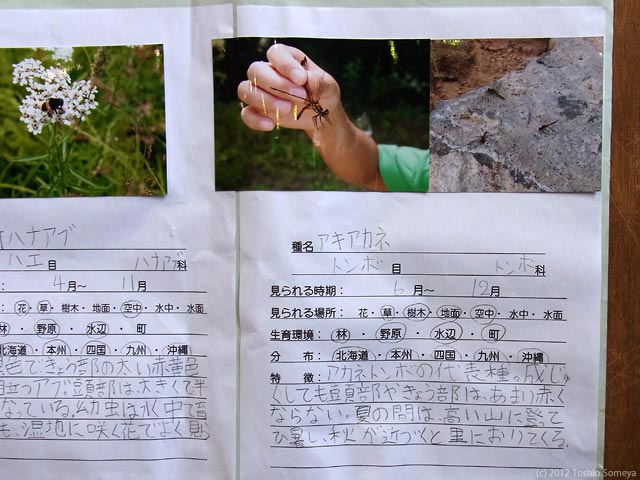 ハナアブ
ハエ 目 ハナアブ科
4月～ 11月
花・草・樹木・地面・空中・水中・水面
林・野原・水辺・町
北海道・本州・四国・九州・沖縄
色できょう部の太い赤橙色
目立つアブ。頭部は大きくて半
なっている。幼虫は水中で育
も、湿地に咲く花でよく見
種名 アキアカネ
トンボ 目 トンボ 科
見られる時期： 6月～ 12月
見られる場所： 花・草・樹木・地面・空中・水中・水面
生育環境： 林・野原・水辺・町
分布： 北海道・本州・四国・九州・沖縄
特徴： アカネトンボの代表種。成じゅ
くしても頭部やきょう部は、あまり赤く
ならない。夏の間は、高い山に登って
ひ暑し、秋が近づくと里におりてくる。
(c) 2012 Toshio Someya